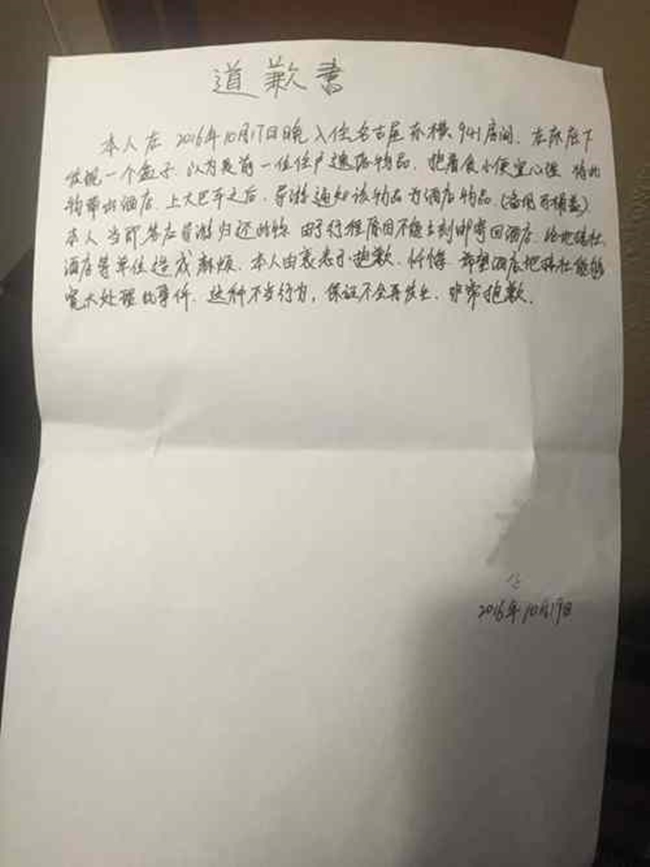 道歉書
本人在2016年10月17日晚入住名古屋东横941房间,在床底下
发现一个盒子,以为是前一位住户遗留物品,抱着贪小便宜心理,将此
物带出酒店,上大巴车之后,导游通知该物品为酒店物品,(备用马桶盖)
本人当即答应导游归还此物,由于行程原因不能立刻邮寄回酒店,给地接社
酒店等单位造成麻烦,本人由衷表示抱歉,忏悔,希望酒店地接社能够
宽大处理此事件,这种不当行为,保证不会再发生,非常抱歉.
2016年10月19日